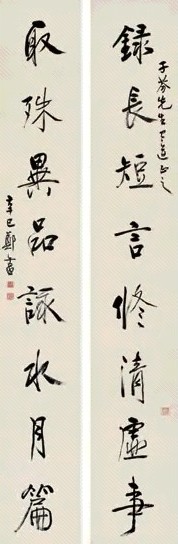 錄長短言修清虛事
子芬先生方道正之
取殊異品詠水月篇
辛巳鄭